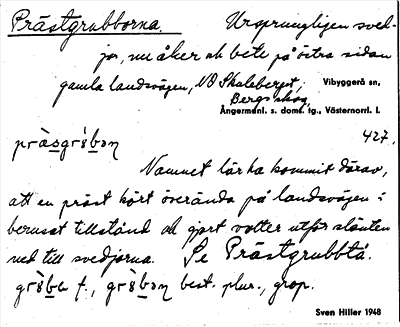 Prästgrubborna. Ursprungligen sved-
jor, nu åker och bete på östra sidan
gamla landsvägen, NO Skuleberget, Vibyggerå sn,
Bergs skog,
Ångermanl. s. doms. tg., Västernorrl. l.
427.
præ̀sgrɵ̀bɔn
Namnet lär ha kommit därav,
att en präst kört överända på landsvägen i
berusat tillstånd och gjort volter utför slänten
ned till svedjorna. Se Prästgrubbtå.
grɵ̀ba f., grɵ̀bɔn best. plur., grop.
Sven Hiller 1948